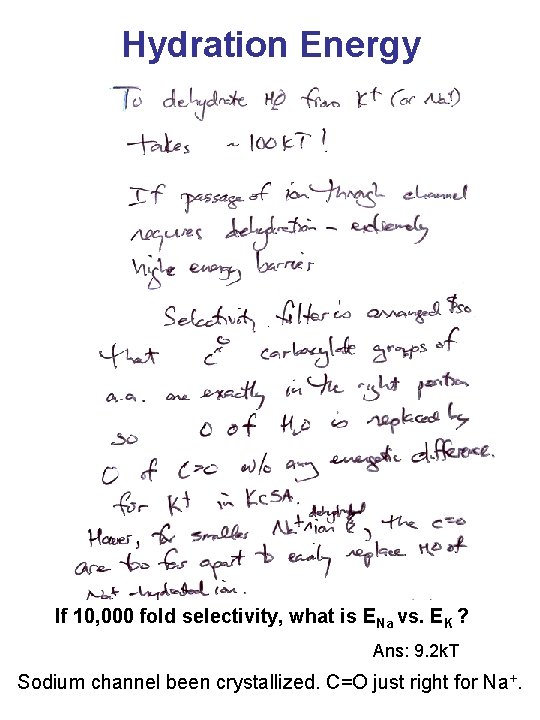 Hydration Energy
To dehydrate H2O from K+ (or Na+)
takes ~ 100 kT!
If passage of ion through channel
requires dehydration - extremely
high energy barrier
Selectivity filter is arranged so
that C=O carboxylate groups of
a.a. are exactly in the right position
so O of H2O is replaced by
O of C=O w/o any energetic difference.
for K+ in KCSA.
However, for smaller dehydrated Na+ ion, the C=O
are too far apart to easily replace H2O of
Na+ -hydrated ion.
If 10,000 fold selectivity, what is ENa vs. EK ?
Ans: 9.2 k.T
Sodium channel been crystallized. C=O just right for Na+.